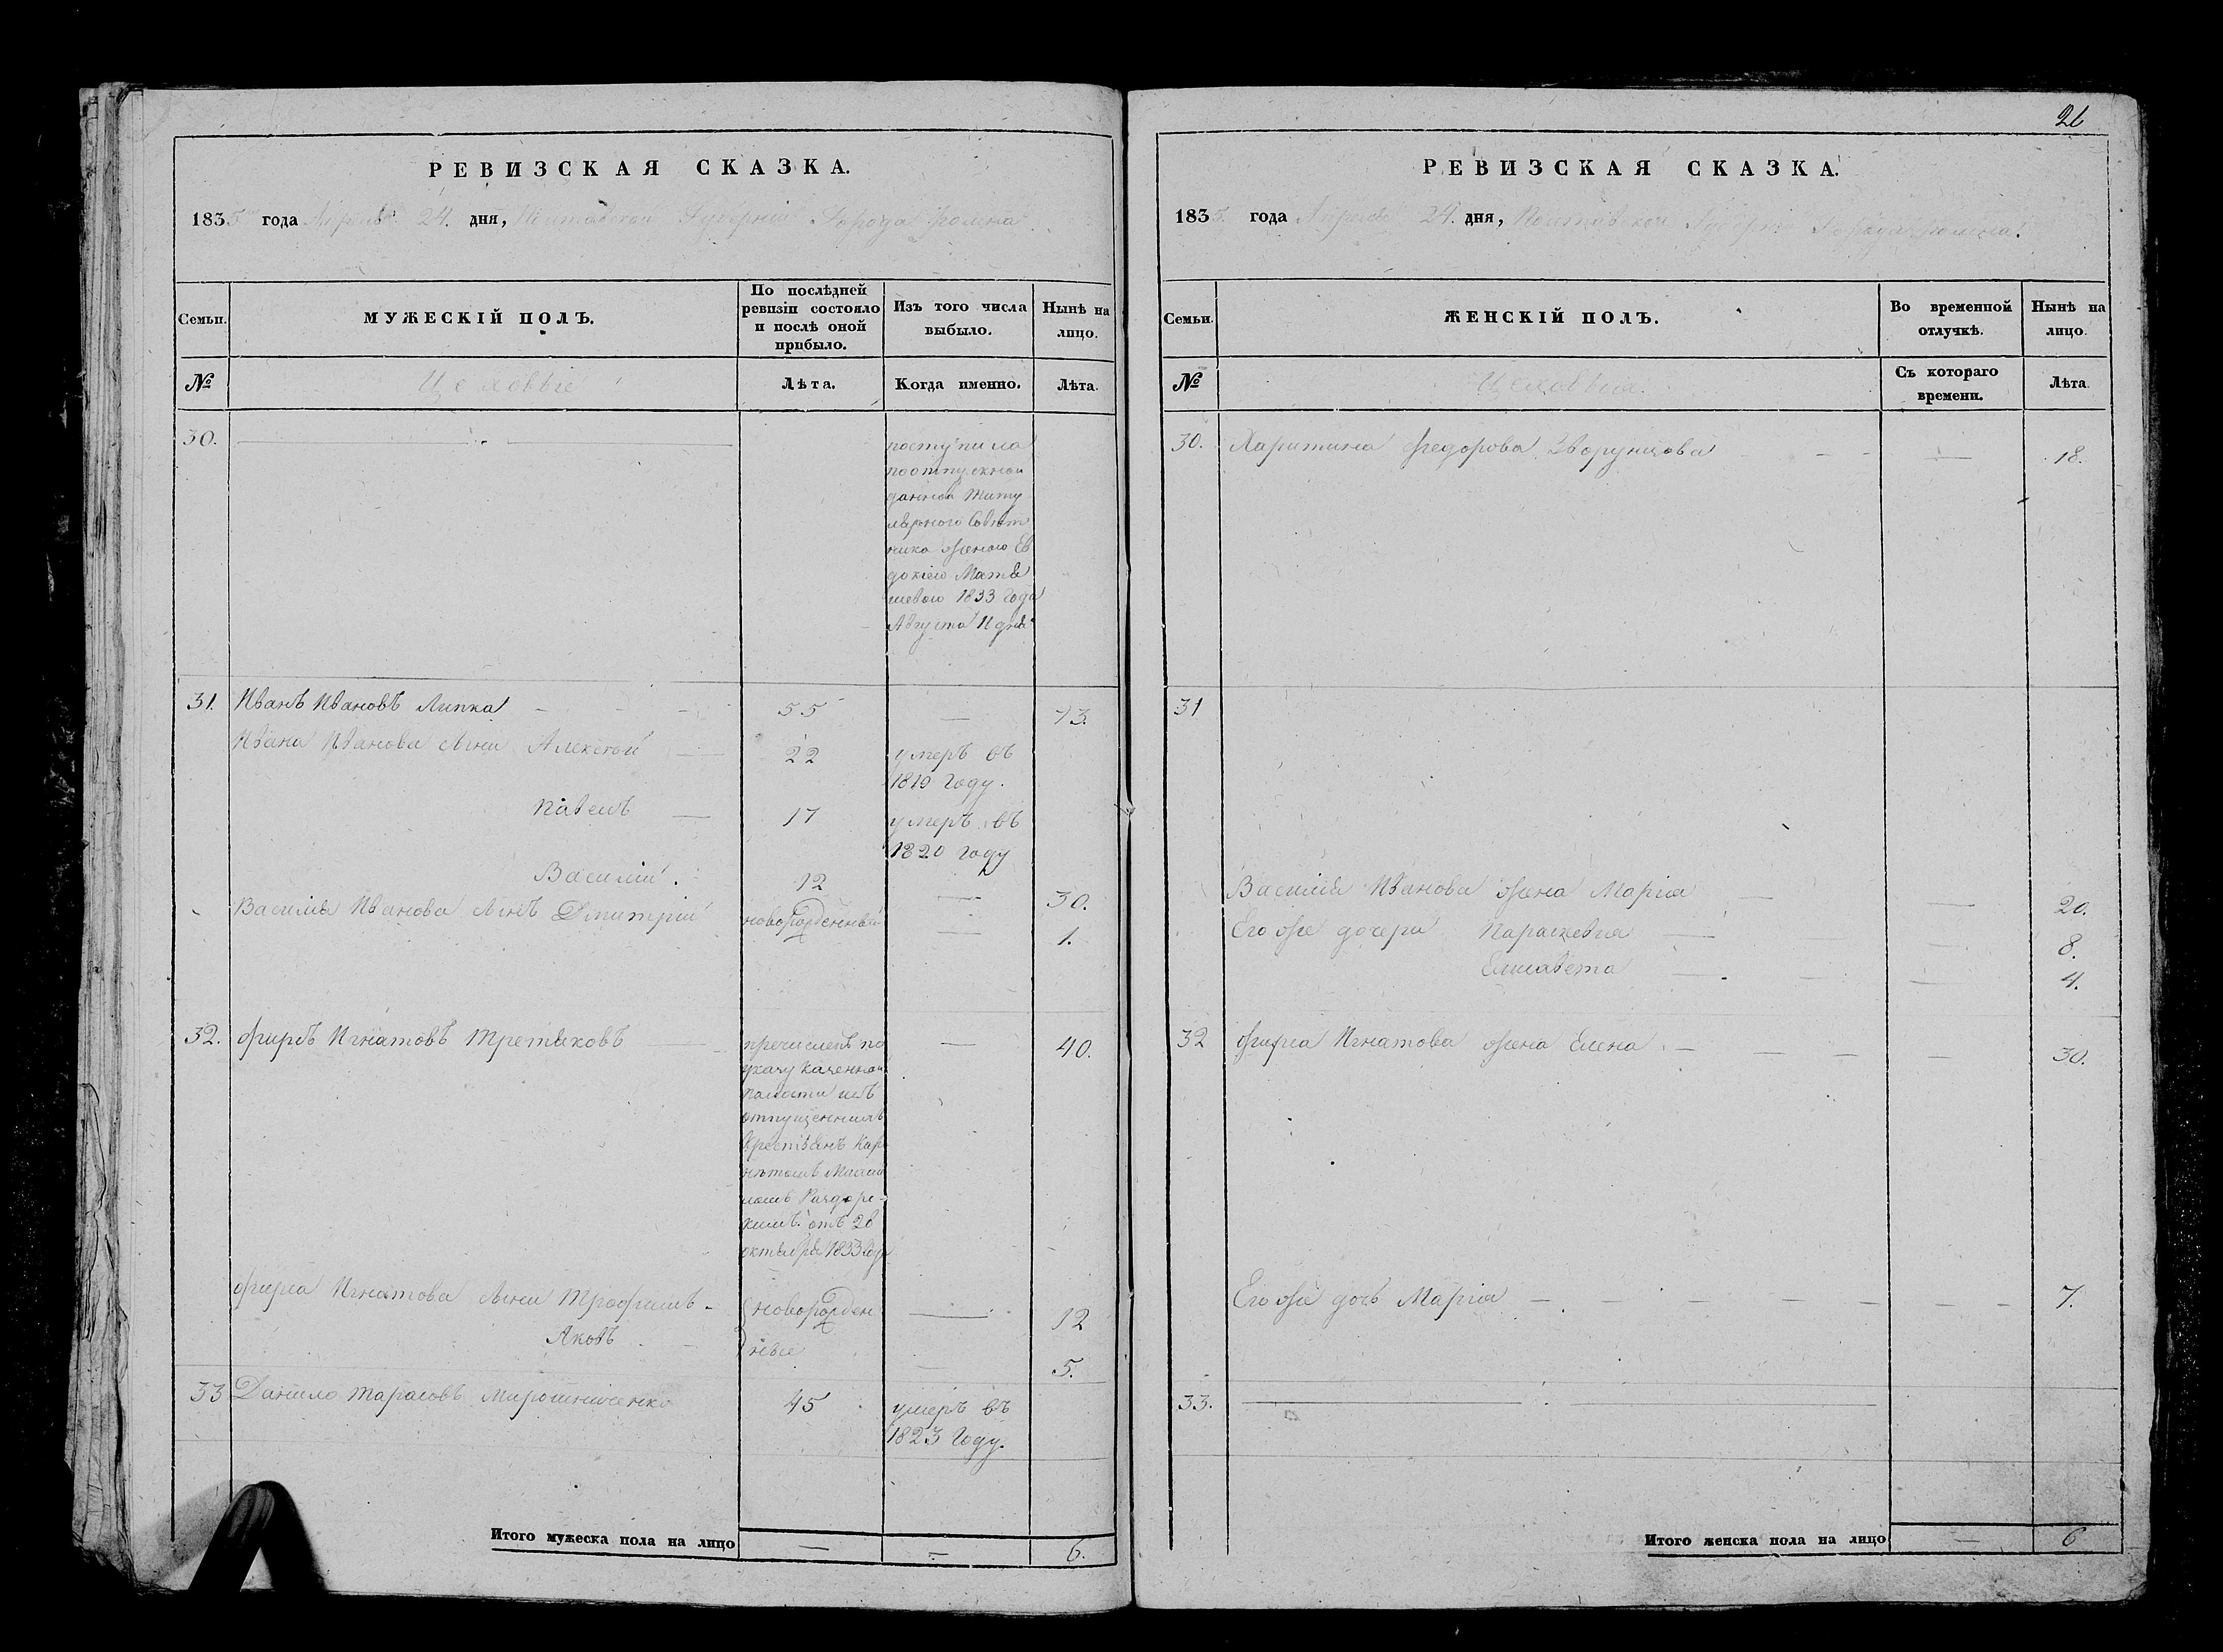 РЕВИЗСКАЯ СКАЗКА.
1835 года Апреля 24. дня, Полтавской Губернии Города Ромна
Семьи.
МУЖЕСКІЙ ПОЛЪ.
По послѣдней ревизіи состояло и послѣ оной прибыло.
Изъ того числа выбыло.
Нынѣ на лицо.
№
Цеховые
Лѣта.
Когда именно.
Лѣта.
30.
поступила
по отпускной
данной Титу
лярного Совѣт
ника женою Ев
докіею
1833 года
Августа 11 дня
31. Иванъ Ивановъ Липка 55 — 73.
Ивана Иванова сыни Алексѣй — 22 умеръ въ
1819 году.
Павелъ — 17 умеръ въ
1820 году
Василій. 12 — 30.
Василія Иванова сынъ Дмитрій новорожденный — 1.
32. Фирсъ Игнатовъ Третьяковъ — 40.
пречисленъ по
указу казенной
полаты изъ
отпущенныхъ
крестьянъ Кор
нетомъ Михаи
ломъ
октября 1833 году
Фирса Игнатова сыни Трофимъ - новорожден — 12
Яковъ ные — 5.
33 Данило Тарасовъ Мирошниченко 45 умеръ въ
1823 году.
Итого мужеска пола на лицо — — 6.
26
РЕВИЗСКАЯ СКАЗКА.
1835. года Апреля 24. дня, Полтавской Губерніи Города Ромна.
Семьи.
ЖЕНСКІЙ ПОЛЪ.
Во временной отлучкѣ.
Нынѣ на лицо.
№
Цеховыя.
Съ котораго времени.
Лѣта.
30. Харитина Федорова — 18.
31
Василія Иванова жена Марія — — 20.
Его же дочери Параскевія — — 8.
Елисавета — — 4.
32 Фирса Игнатова жена Елена. — — — — — 30.
Его же дочь Марія — — — — — — — 7.
33.
Итого женска пола на лицо — 6